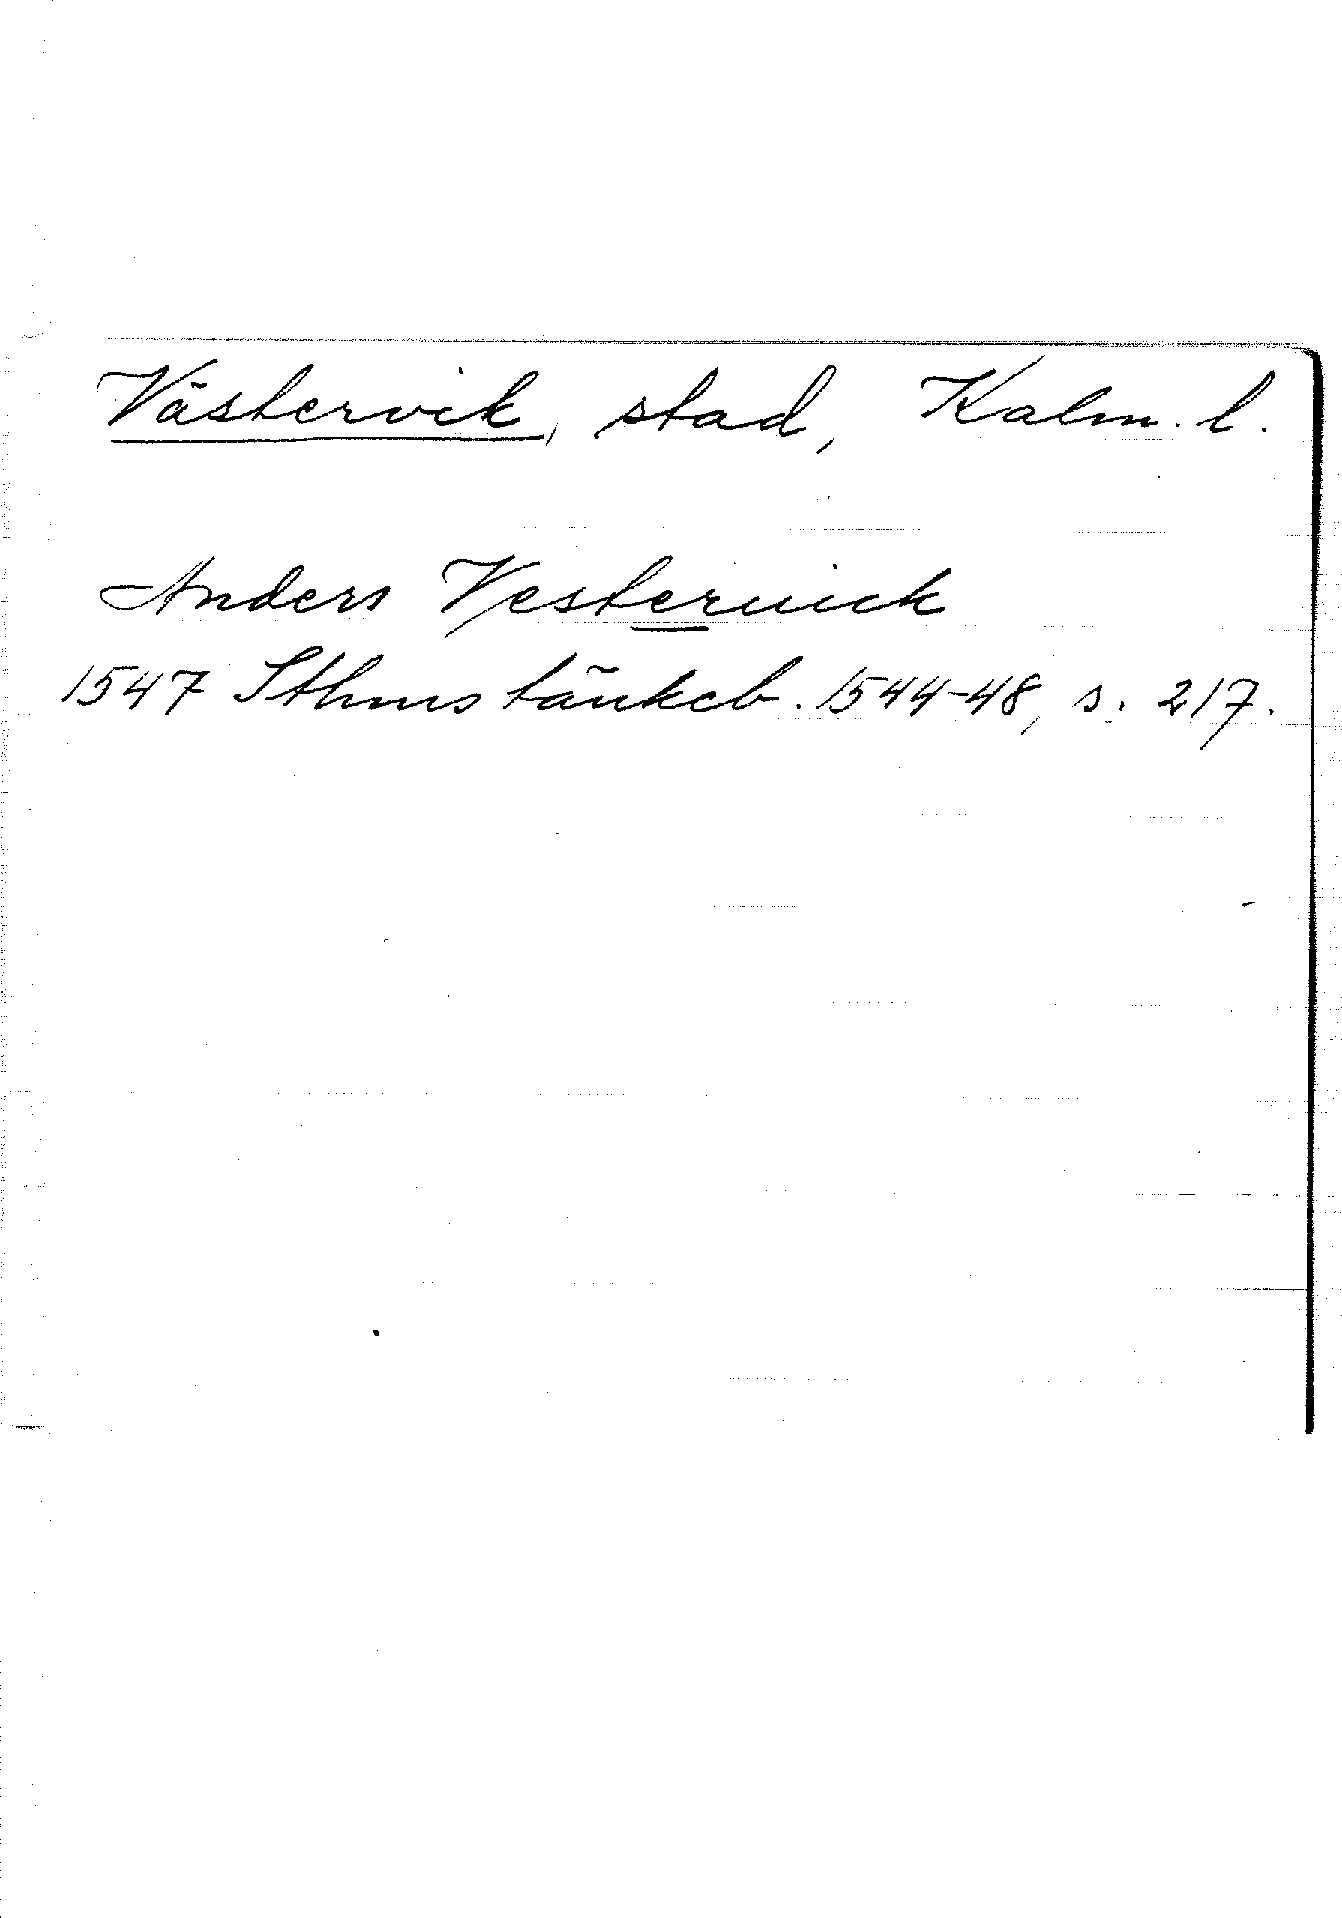 Västervik, stad, Kalm. l.
Anders Vesteruick
1547 Sthms tänkeb. 1544-48, s. 217.